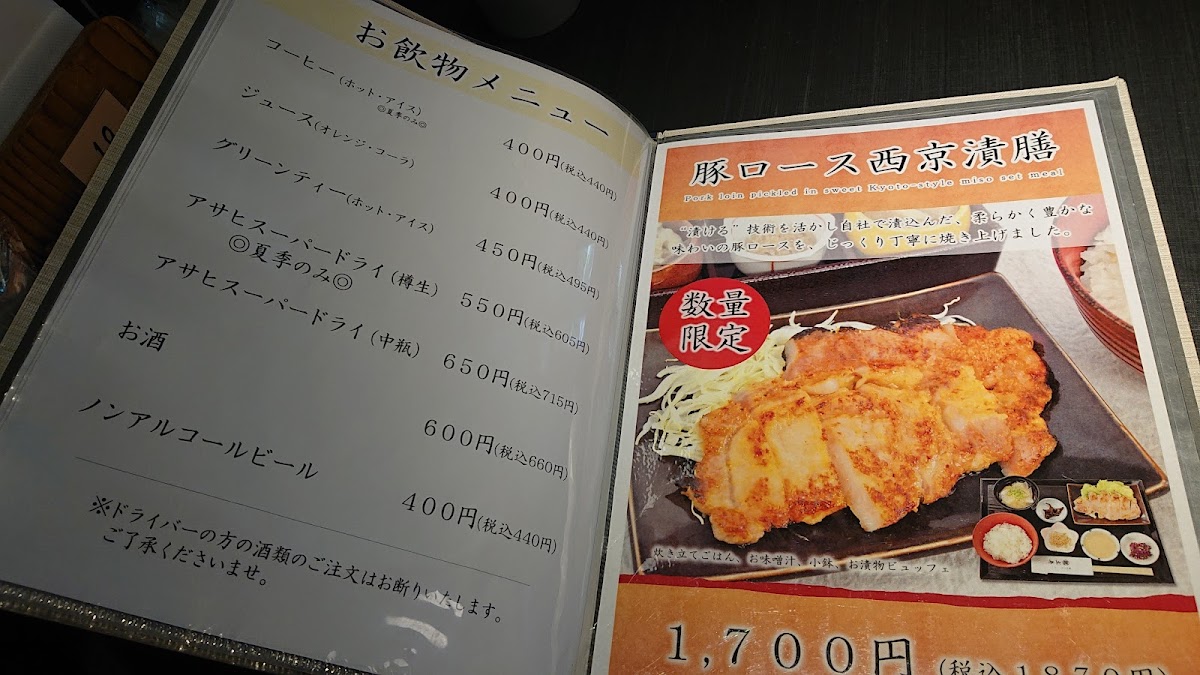 お飲物メニュー
コーヒー(ホット・アイス) 400円(税込440円)
◎夏季のみ◎
ジュース(オレンジ・コーラ) 400円(税込440円)
グリーンティー(ホット・アイス) 450円(税込495円)
アサヒスーパードライ(樽生) 550円(税込605円)
◎夏季のみ◎
アサヒスーパードライ(中瓶) 650円(税込715円)
お酒 600円(税込660円)
ノンアルコールビール 400円(税込440円)
※ドライバーの方の酒類のご注文はお断りいたします。
ご了承くださいませ。
豚ロース西京漬膳
Pork loin pickled in sweet Kyoto-style miso set meal
“漬ける”技術を活かし自社で漬込んだ、柔らかく豊かな
味わいの豚ロースを、じっくり丁寧に焼き上げました。
数量
限定
炊き立てごはん、お味噌汁、小鉢、お漬物ビュッフェ
1,700円(税込1870円)